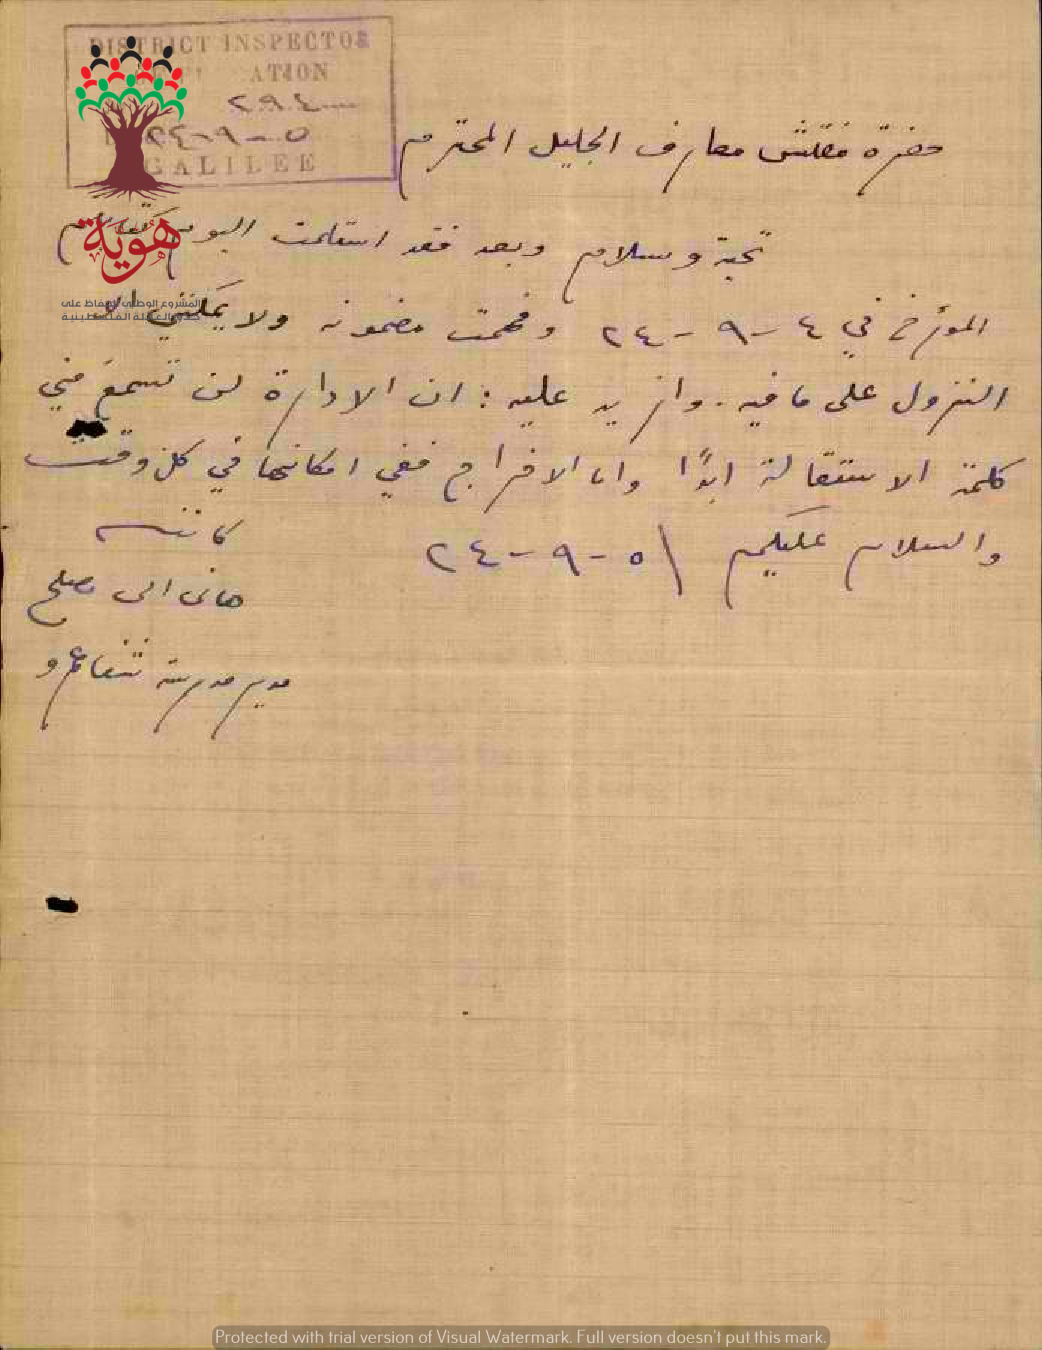 DISTRICT INSPECTOR
ATION
٢٩٤
٢٤-٩-٥
GALILEE
حضرة مفتش معارف الجليل المحترم
تحية وسلام وبعد فقد استلمت اليوم
هوية
المشروع الوطني للحفاظ على
جذور العائلة الفلسطينية
المؤرخ في ٤-٩-٢٤ وفهمت مضمونه ولا يمكنني الا
النزول على ما فيه. وازيد عليه: ان الادارة لن تسمع مني
كلمة الاستقالة ابدًا واما الافراج ففي امكانها في كل وقت
والسلام عليكم \ ٥-٩-٢٤
كاتبه
هاني ابي مصلح
مدير مدرسة شفاعمرو
Protected with trial version of Visual Watermark. Full version doesn't put this mark.